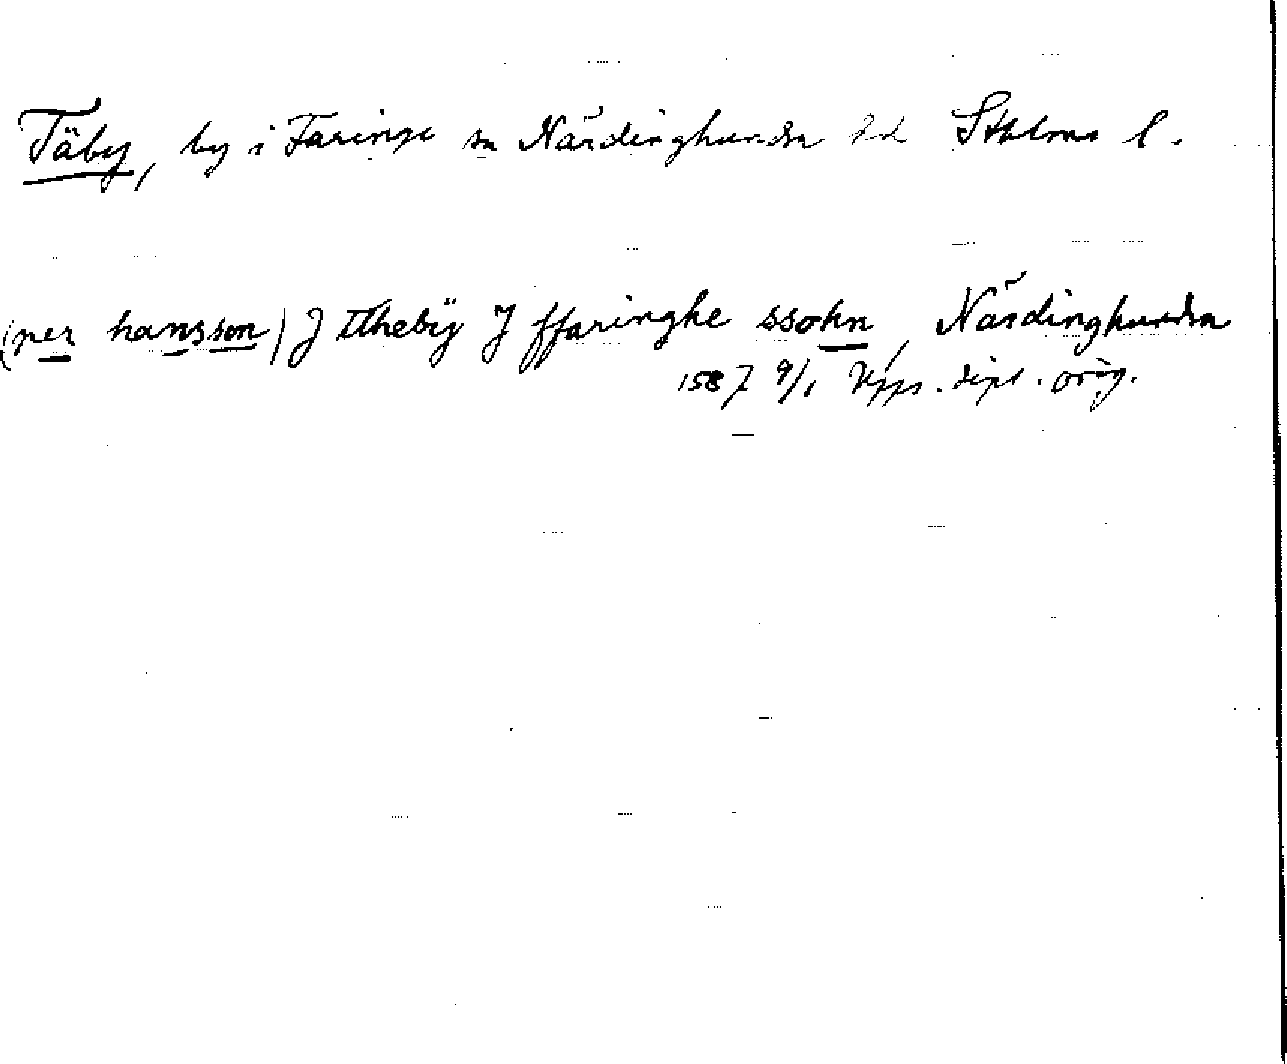 Täby, by i Faringe sn Närdinghundra hd Sthlms l.
(per hansson) J tthebÿ J ffaringhe ssokn, Närdinghundra
1587 9/1 Upps. dipl. orig.